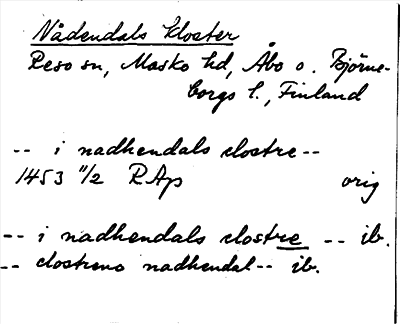 Nådendals kloster
Reso sn, Masko hd, Åbo o. Björne-
borgs l., Finland
-- i nadhendals clostre --
1453 11/2 RAp orig
-- i nadhendals clostre -- ib.
-- clostreno nadhendal -- ib.